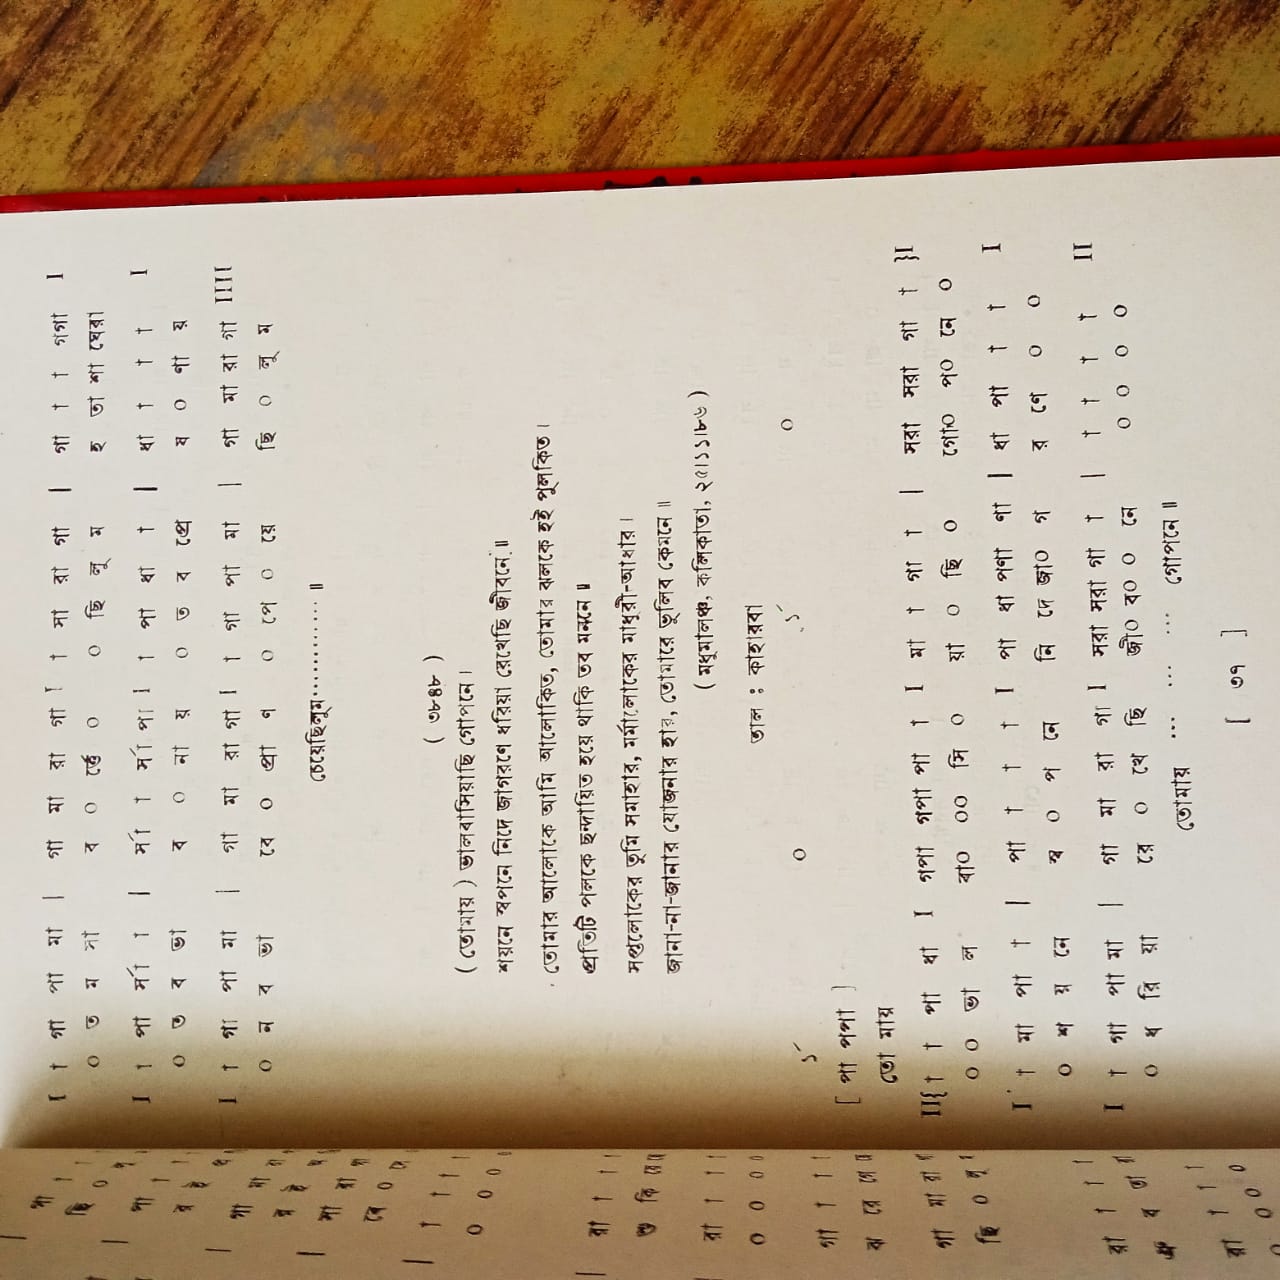 I † গা পা মা | গা মা রা গা I † মা রা গা | গা † † গগা I
০ ত ম সা ব ০ র্তে ০ ০ ছি লু ম হ তা শা ঘেরা
I † পা র্সা † | র্সা † র্সা পা I † পা ধা † | ধা † † † I
০ ত ব ভা ব ০ না য় ০ ত ব প্রে ষ ০ ণা য়
I † গা পা মা | গা মা রা গা I † গা পা মা | গা মা রা গা IIII
০ ন ব ভা বে ০ প্রা ণ ০ পে ০ য়ে ছি ০ লু ম
চেয়েছিলুম............ ॥
( ৩৮৪৮ )
( তোমায় ) ভালবাসিয়াছি গোপনে ।
শয়নে স্বপনে নিদে জাগরণে ধরিয়া রেখেছি জীবনে ॥
তোমার আলোকে আমি আলোকিত, তোমার ঝলকে হই পুলকিত ।
প্রতিটি পলকে ছন্দায়িত হয়ে থাকি তব মননে ॥
সপ্তলোকের তুমি সমাহার, মর্মালোকের মাধুরী-আধার ।
জানা-না-জানার যোজনার হার, তোমারে ভুলিব কেমনে ॥
( মধুমালঞ্চ, কলিকাতা, ২৫।১১।৮৬ )
তাল : কাহারবা
১´ ০ ১´ ০
[ পা পপা ]
তো মায়
II{ † † পা ধা I গপা গপা পা † I মা † গা † | সরা সরা গা † }I
০ ০ ভা ল বা০ ০০ সি ০ য়া ০ ছি ০ গো০ প০ নে ০
I † মা পা † | পা † † † I পা ধা পণা ণা | ধা পা † † I
০ শ য় নে স্ব ০ প নে নি দে জা০ গ র ণে ০ ০
I † গা পা মা | গা মা রা গা I সরা সরা গা † | † † † † II
০ ধ রি য়া রে ০ খে ছি জী০ ব০ ০ নে ০ ০ ০ ০
তোমায় ... ... ... গোপনে ॥
[ ৩৭ ]